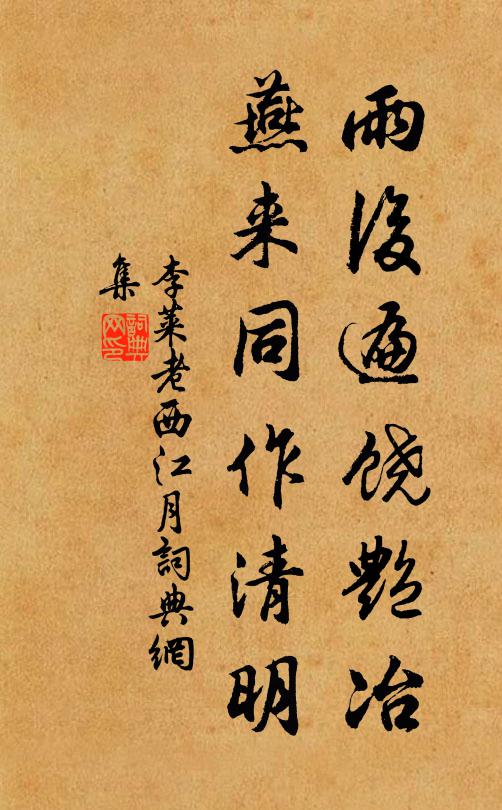 雨後遍饒艷冶
燕来同作清明
李萊老西江月詞典網
集
詞典
网印